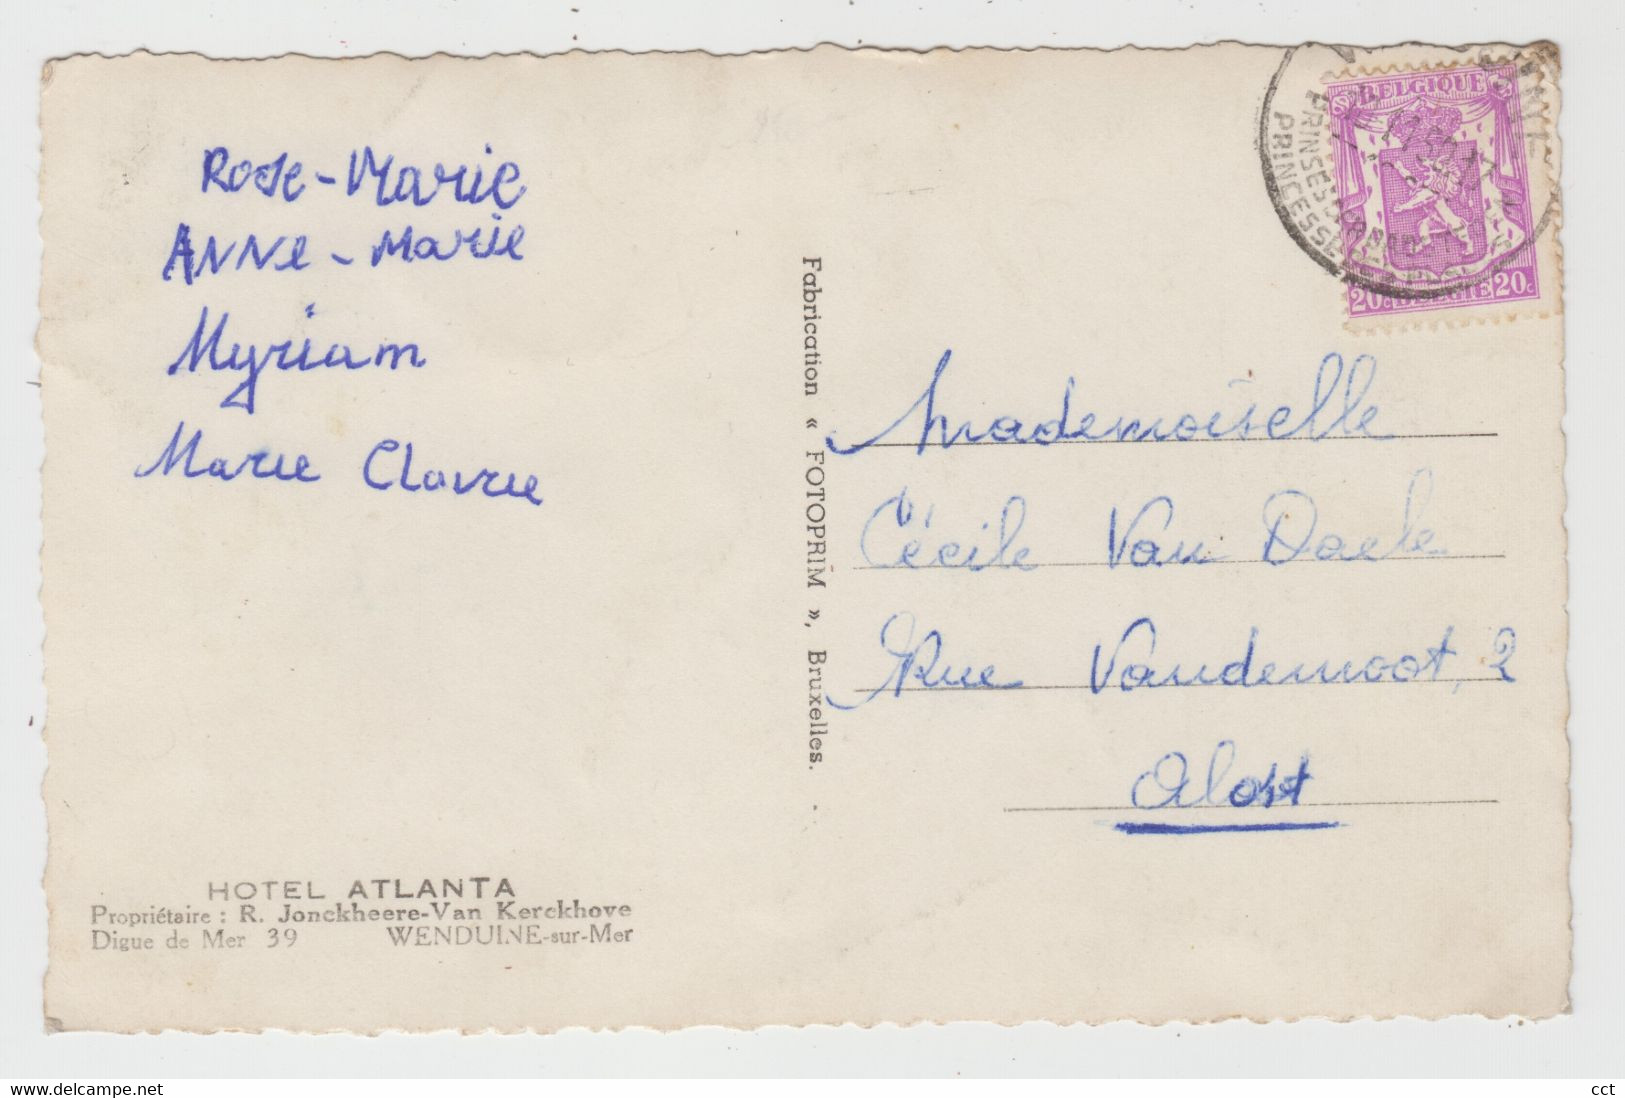 Rose-Marie
ANNe-Marie
Myriam
Marie Clavrie
HOTEL ATLANTA
Propriétaire : R. Jonckheere-Van Kerckhove
Digue de Mer 39 WENDUINE-sur-Mer
Fabrication « FOTOPRIM », Bruxelles.
BELGIQUE
20c BELGIE 20c
PRINSES
PRINCESSE
Mademoiselle
Cécile Van Daele
Rue Vandemoot, 2
Alost
delcampe.net
cct